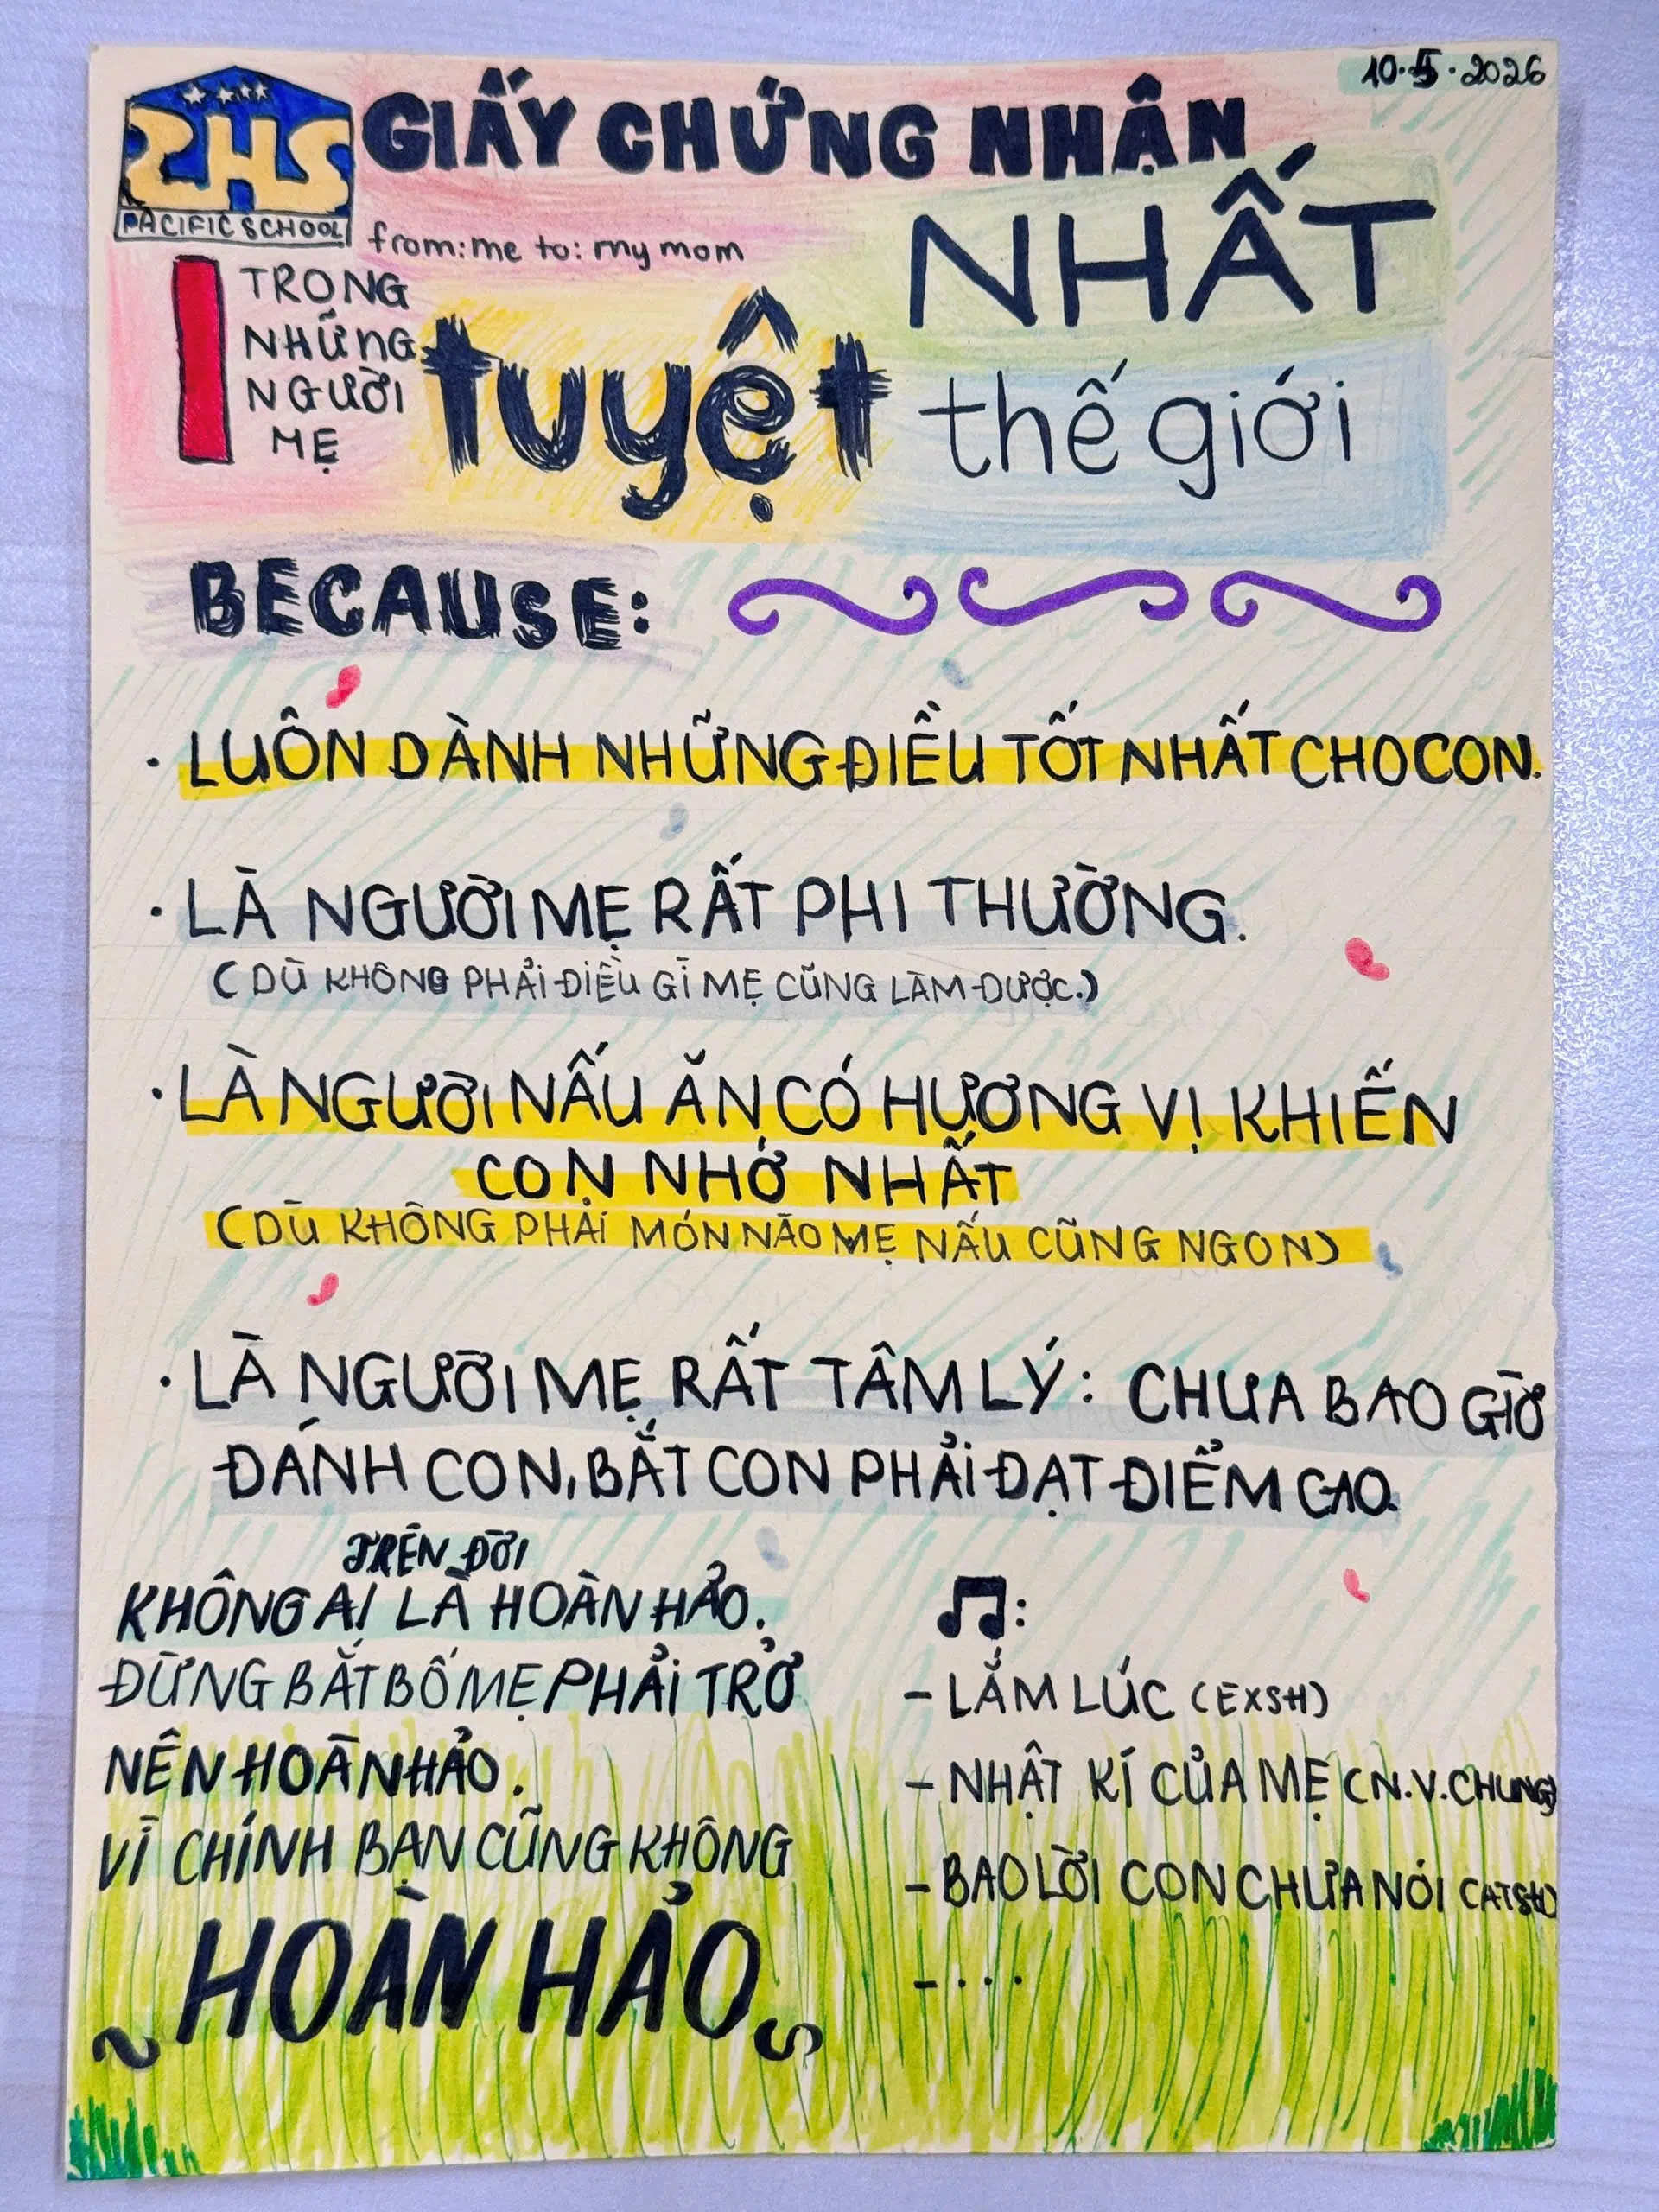 10.5.2026
PHS
PACIFIC SCHOOL
GIẤY CHỨNG NHẬN
from: me to: my mom
1 TRONG
NHỮNG
NGƯỜI
MẸ
tuyệt
NHẤT
thế giới
BECAUSE:
· LUÔN DÀNH NHỮNG ĐIỀU TỐT NHẤT CHO CON.
· LÀ NGƯỜI MẸ RẤT PHI THƯỜNG.
(DÙ KHÔNG PHẢI ĐIỀU GÌ MẸ CŨNG LÀM ĐƯỢC.)
· LÀ NGƯỜI NẤU ĂN CÓ HƯƠNG VỊ KHIẾN
CON NHỚ NHẤT
(DÙ KHÔNG PHẢI MÓN NÀO MẸ NẤU CŨNG NGON)
· LÀ NGƯỜI MẸ RẤT TÂM LÝ: CHƯA BAO GIỜ
ĐÁNH CON, BẮT CON PHẢI ĐẠT ĐIỂM CAO.
TRÊN ĐỜI
KHÔNG AI LÀ HOÀN HẢO.
ĐỪNG BẮT BỐ MẸ PHẢI TRỞ
NÊN HOÀN HẢO.
VÌ CHÍNH BẠN CŨNG KHÔNG
HOÀN HẢO
♫:
- LẮM LÚC (EXSH)
- NHẬT KÍ CỦA MẸ (N.V.CHUNG)
- BAO LỜI CON CHƯA NÓI (ATSH)
- ...